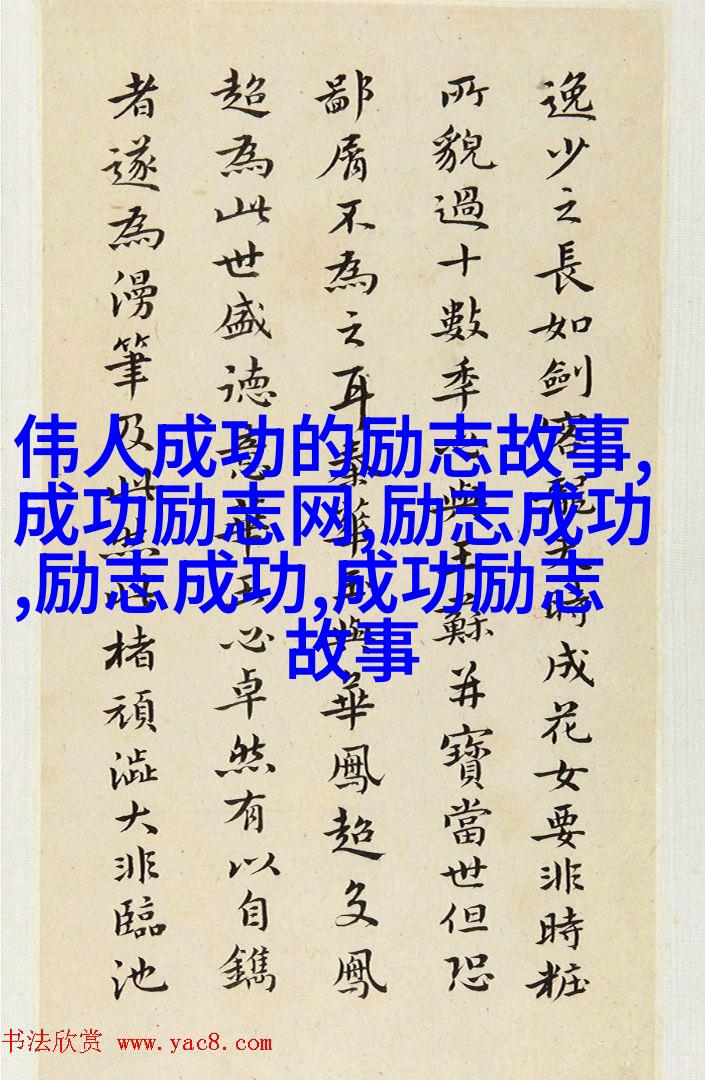 逸少之長如劍客時成花女要非時粧
所貌過十數季與王蘇并寶當世但恐
鄙屑不為之耳秦華與華鳳超文鳳
超為此世盛德意華正心卓然有以自鐫
者遂為漫筆及此楮頑澁大非臨池
伟人成功的励志故事,
成功励志网,励志成功
,励志成功,成功励志
故事
书法欣赏 www.yac8.com